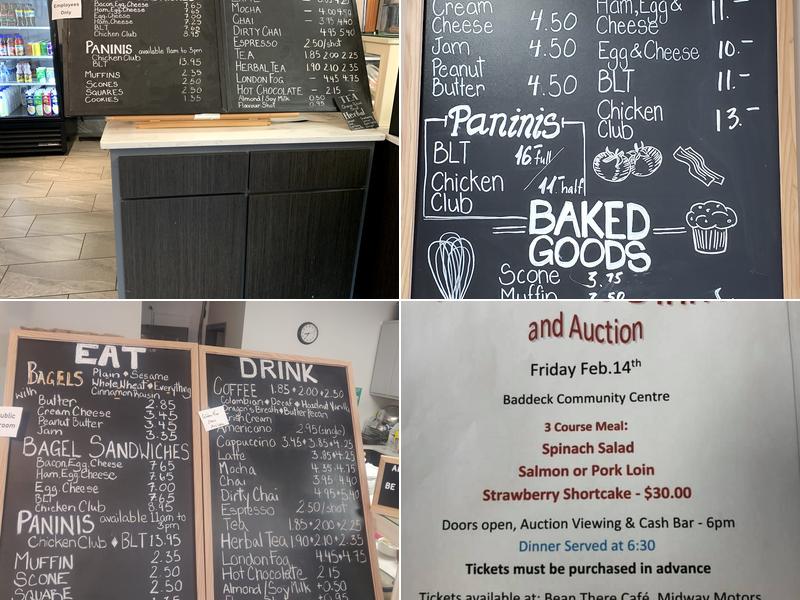 Employees
Only
Bacon, Egg, Cheese 7.65
Ham, Egg, Cheese 7.65
Egg, Cheese 7.00
Ham, Cheese
BLT 7.65
Chicken Club 8.95
PANINIS available 11am to 3pm
Chicken Club
BLT 13.95
MUFFINS 2.35
SCONES 2.50
SQUARES 2.50
COOKIES 1.35
MOCHA — 4.00 4.50
CHAI — 3.95 4.40
DIRTY CHAI 4.95 5.40
ESPRESSO 2.50/shot
TEA 1.85 2.00 2.25
HERBAL TEA 1.90 2.10 2.35
LONDON FOG — 4.45 4.75
HOT CHOCOLATE — 2.15
Almond/Soy Milk 0.50
Flavour Shot 0.95
TEA
Herbal
Cream
Cheese 4.50
Jam
Peanut
Butter 4.50
Ham, Egg &
Cheese 11.-
Egg & Cheese 10.-
BLT 11.-
Chicken
Club 13.-
Paninis
BLT 16.- Full
Chicken
Club 11.- half
BAKED
GOODS
Scone 3.75
Muffin 3.50
EAT
BAGELS Plain • Sesame
Whole Wheat • Everything
Cinnamon Raisin
with Butter 2.85
Cream Cheese 3.45
Peanut Butter 3.45
Jam 3.35
BAGEL SANDWICHES
Bacon, Egg, Cheese 7.65
Ham, Egg, Cheese 7.65
Egg, Cheese 7.00
BLT 7.65
Chicken Club 8.95
PANINIS available 11am to
3pm
Chicken Club • BLT 13.95
MUFFIN 2.35
SCONE 2.50
SQUARE 2.50
DRINK
COFFEE 1.85 • 2.00 • 2.30
Colombian • Decaf • Hazelnut Vanilla
Dragon's Breath • Butter Pecan
Irish Cream
Americano 2.95 (single)
Cappuccino 3.45 • 3.85 • 4.25
Latte 3.85 • 4.25
Mocha 4.35 • 4.75
Chai 3.95 • 4.40
Dirty Chai 4.95 • 5.40
Espresso 2.50/shot
Tea 1.85 • 2.00 • 2.25
Herbal Tea 1.90 • 2.10 • 2.35
London Fog 4.45 • 4.75
Hot Chocolate 2.15
Almond/Soy Milk +0.50
+0.95
and Auction
Friday Feb.14th
Baddeck Community Centre
3 Course Meal:
Spinach Salad
Salmon or Pork Loin
Strawberry Shortcake - $30.00
Doors open, Auction Viewing & Cash Bar - 6pm
Dinner Served at 6:30
Tickets must be purchased in advance
Tickets available at: Bean There Café, Midway Motors